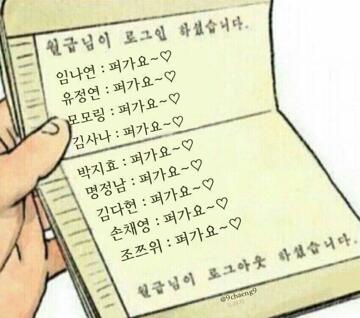 월급님이 로그인 하셨습니다.
임나연 : 퍼가요~♡
유정연 : 퍼가요~♡
모모링 : 퍼가요~♡
김사나 : 퍼가요~♡
박지효 : 퍼가요~♡
명정남 : 퍼가요~♡
김다현 : 퍼가요~♡
손채영 : 퍼가요~♡
조쯔위 : 퍼가요~♡
@9chaeng9
월급님이 로그아웃 하셨습니다.